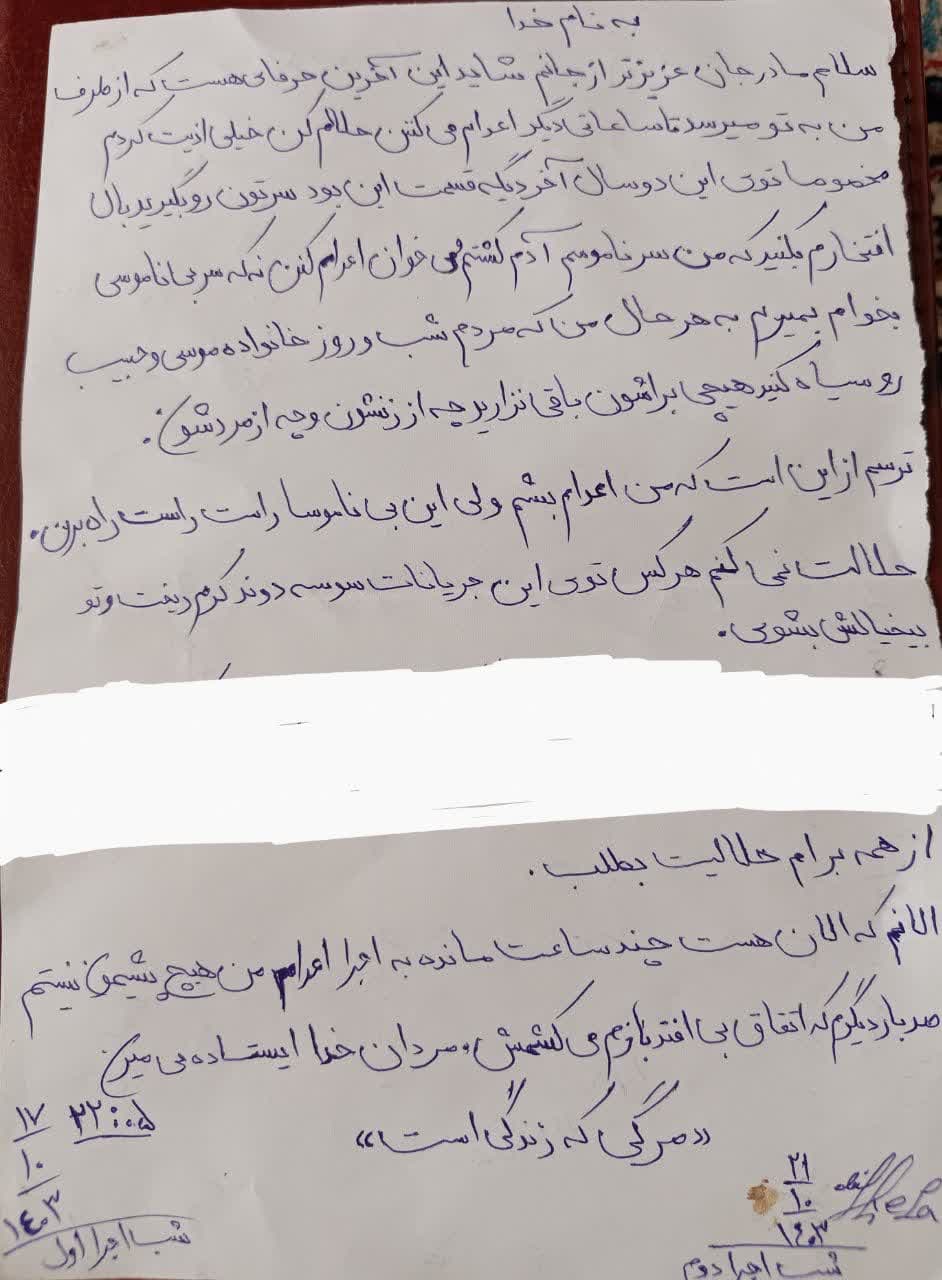 به نام خدا
سلام مادر جان عزیزتر از جانم شاید این آخرین حرفای هست که از طرف
من به تو میرسد تا ساعاتی دیگر اعدام می کنن حلالم کن خیلی اذیت کردم
مخصوصا توی این دو سال آخر دیگه قسمت این بود سرتون رو بگیرید بال
افتخارم بکنید که من سر ناموسم آدم کشتم می خوان اعدام کنن نه که سر بی ناموسی
بخوام بمیرم به هر حال من که مردم شب و روز خانواده موسی و حبیب
رو سیاه کنید هیچی براشون باقی نزارید چه از زنشون و چه از مردشون.
ترسم از این است که من اعدام بشم ولی این بی ناموسا راست راست راه برن.
حلالت نمی کنم هر کس توی این جریانات سوسه دوند کرم ریخت و تو
بیخیالش بشوی.
از همه برام حلالیت بطلب.
الانم که الان هست چند ساعت مانده به اجرا اعدام من هیچ پشیمون نیستم
صد بار دیگرم که اتفاق بی افتد بازم می کشمش، مردان خدا ایستاده می میرن
«مرگی که زندگی است»
۲۲:۰۵ ۱۷/۱۰/۱۴۰۳
شب اجرا اول
۲۱/۱۰/۱۴۰۳
شب اجرا دوم